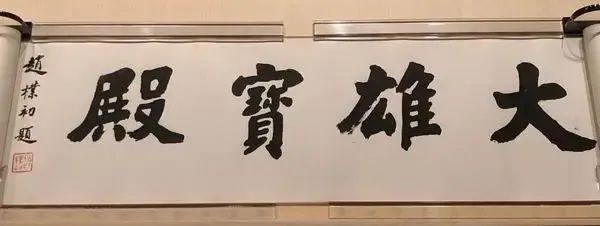 大雄寶殿
趙樸初題